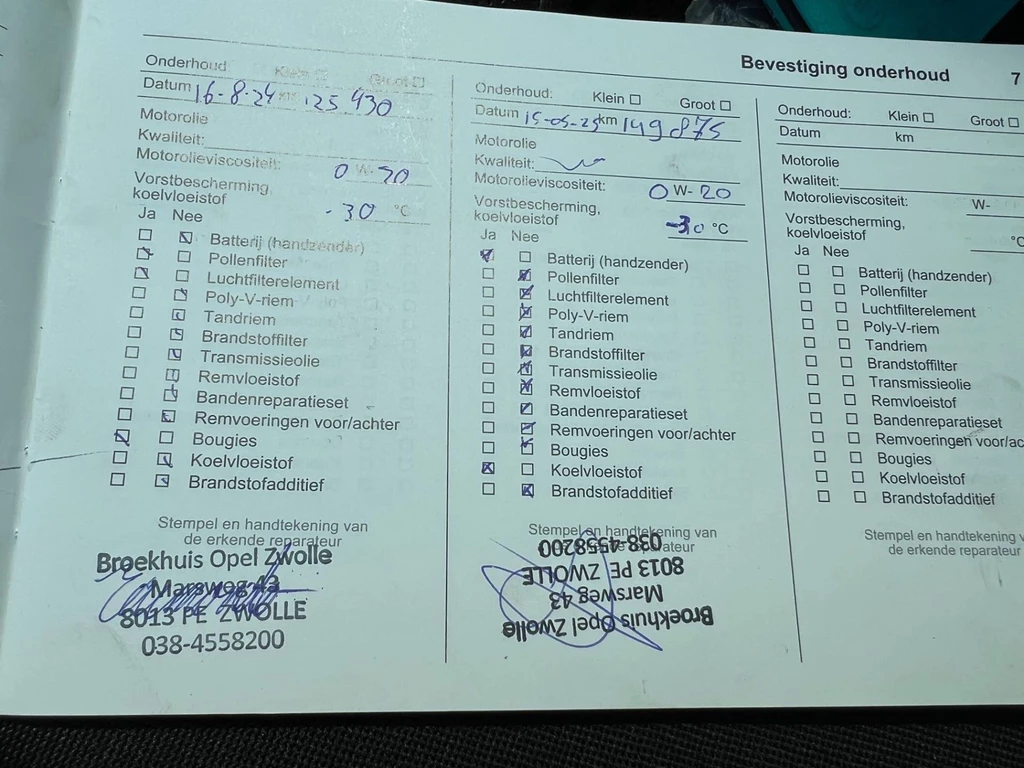 Bevestiging onderhoud 7
Onderhoud: Klein Groot
Datum 16-8-24 km 125 430
Motorolie
Kwaliteit:
Motorolieviscositeit: 0 W-20
Vorstbescherming,
koelvloeistof -30 °C
Ja Nee
Batterij (handzender)
Pollenfilter
Luchtfilterelement
Poly-V-riem
Tandriem
Brandstoffilter
Transmissieolie
Remvloeistof
Bandenreparatieset
Remvoeringen voor/achter
Bougies
Koelvloeistof
Brandstofadditief
Stempel en handtekening van
de erkende reparateur
Broekhuis Opel Zwolle
Marsweg 43
8013 PE ZWOLLE
038-4558200
Onderhoud: Klein Groot
Datum 15-05-25 km 149 875
Motorolie
Kwaliteit:
Motorolieviscositeit: 0 W-20
Vorstbescherming,
koelvloeistof -30 °C
Ja Nee
Batterij (handzender)
Pollenfilter
Luchtfilterelement
Poly-V-riem
Tandriem
Brandstoffilter
Transmissieolie
Remvloeistof
Bandenreparatieset
Remvoeringen voor/achter
Bougies
Koelvloeistof
Brandstofadditief
Stempel en handtekening van
de erkende reparateur
Broekhuis Opel Zwolle
Marsweg 43
8013 PE ZWOLLE
038-4558200
Onderhoud: Klein Groot
Datum km
Motorolie
Kwaliteit:
Motorolieviscositeit: W-
Vorstbescherming,
koelvloeistof °C
Ja Nee
Batterij (handzender)
Pollenfilter
Luchtfilterelement
Poly-V-riem
Tandriem
Brandstoffilter
Transmissieolie
Remvloeistof
Bandenreparatieset
Remvoeringen voor/ac
Bougies
Koelvloeistof
Brandstofadditief
Stempel en handtekening v
de erkende reparateur